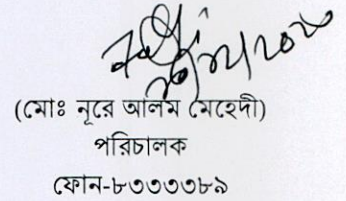 (মোঃ নূরে আলম মেহেদী)
পরিচালক
ফোন-৮৩৩৩৩৮৯